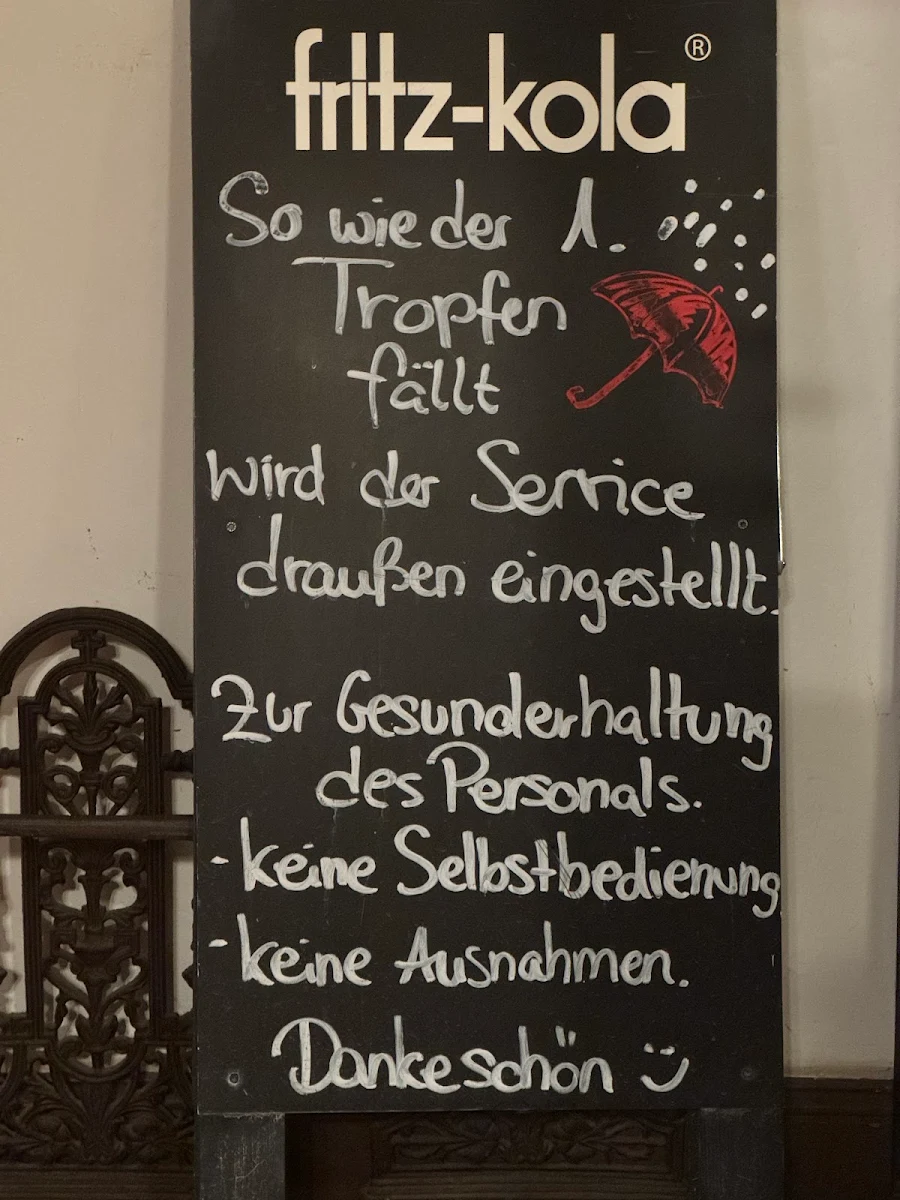 fritz-kola®
So wie der 1.
Tropfen
fällt
wird der Service
draußen eingestellt.
Zur Gesunderhaltung
des Personals.
- keine Selbstbedienung
- keine Ausnahmen.
Dankeschön :)